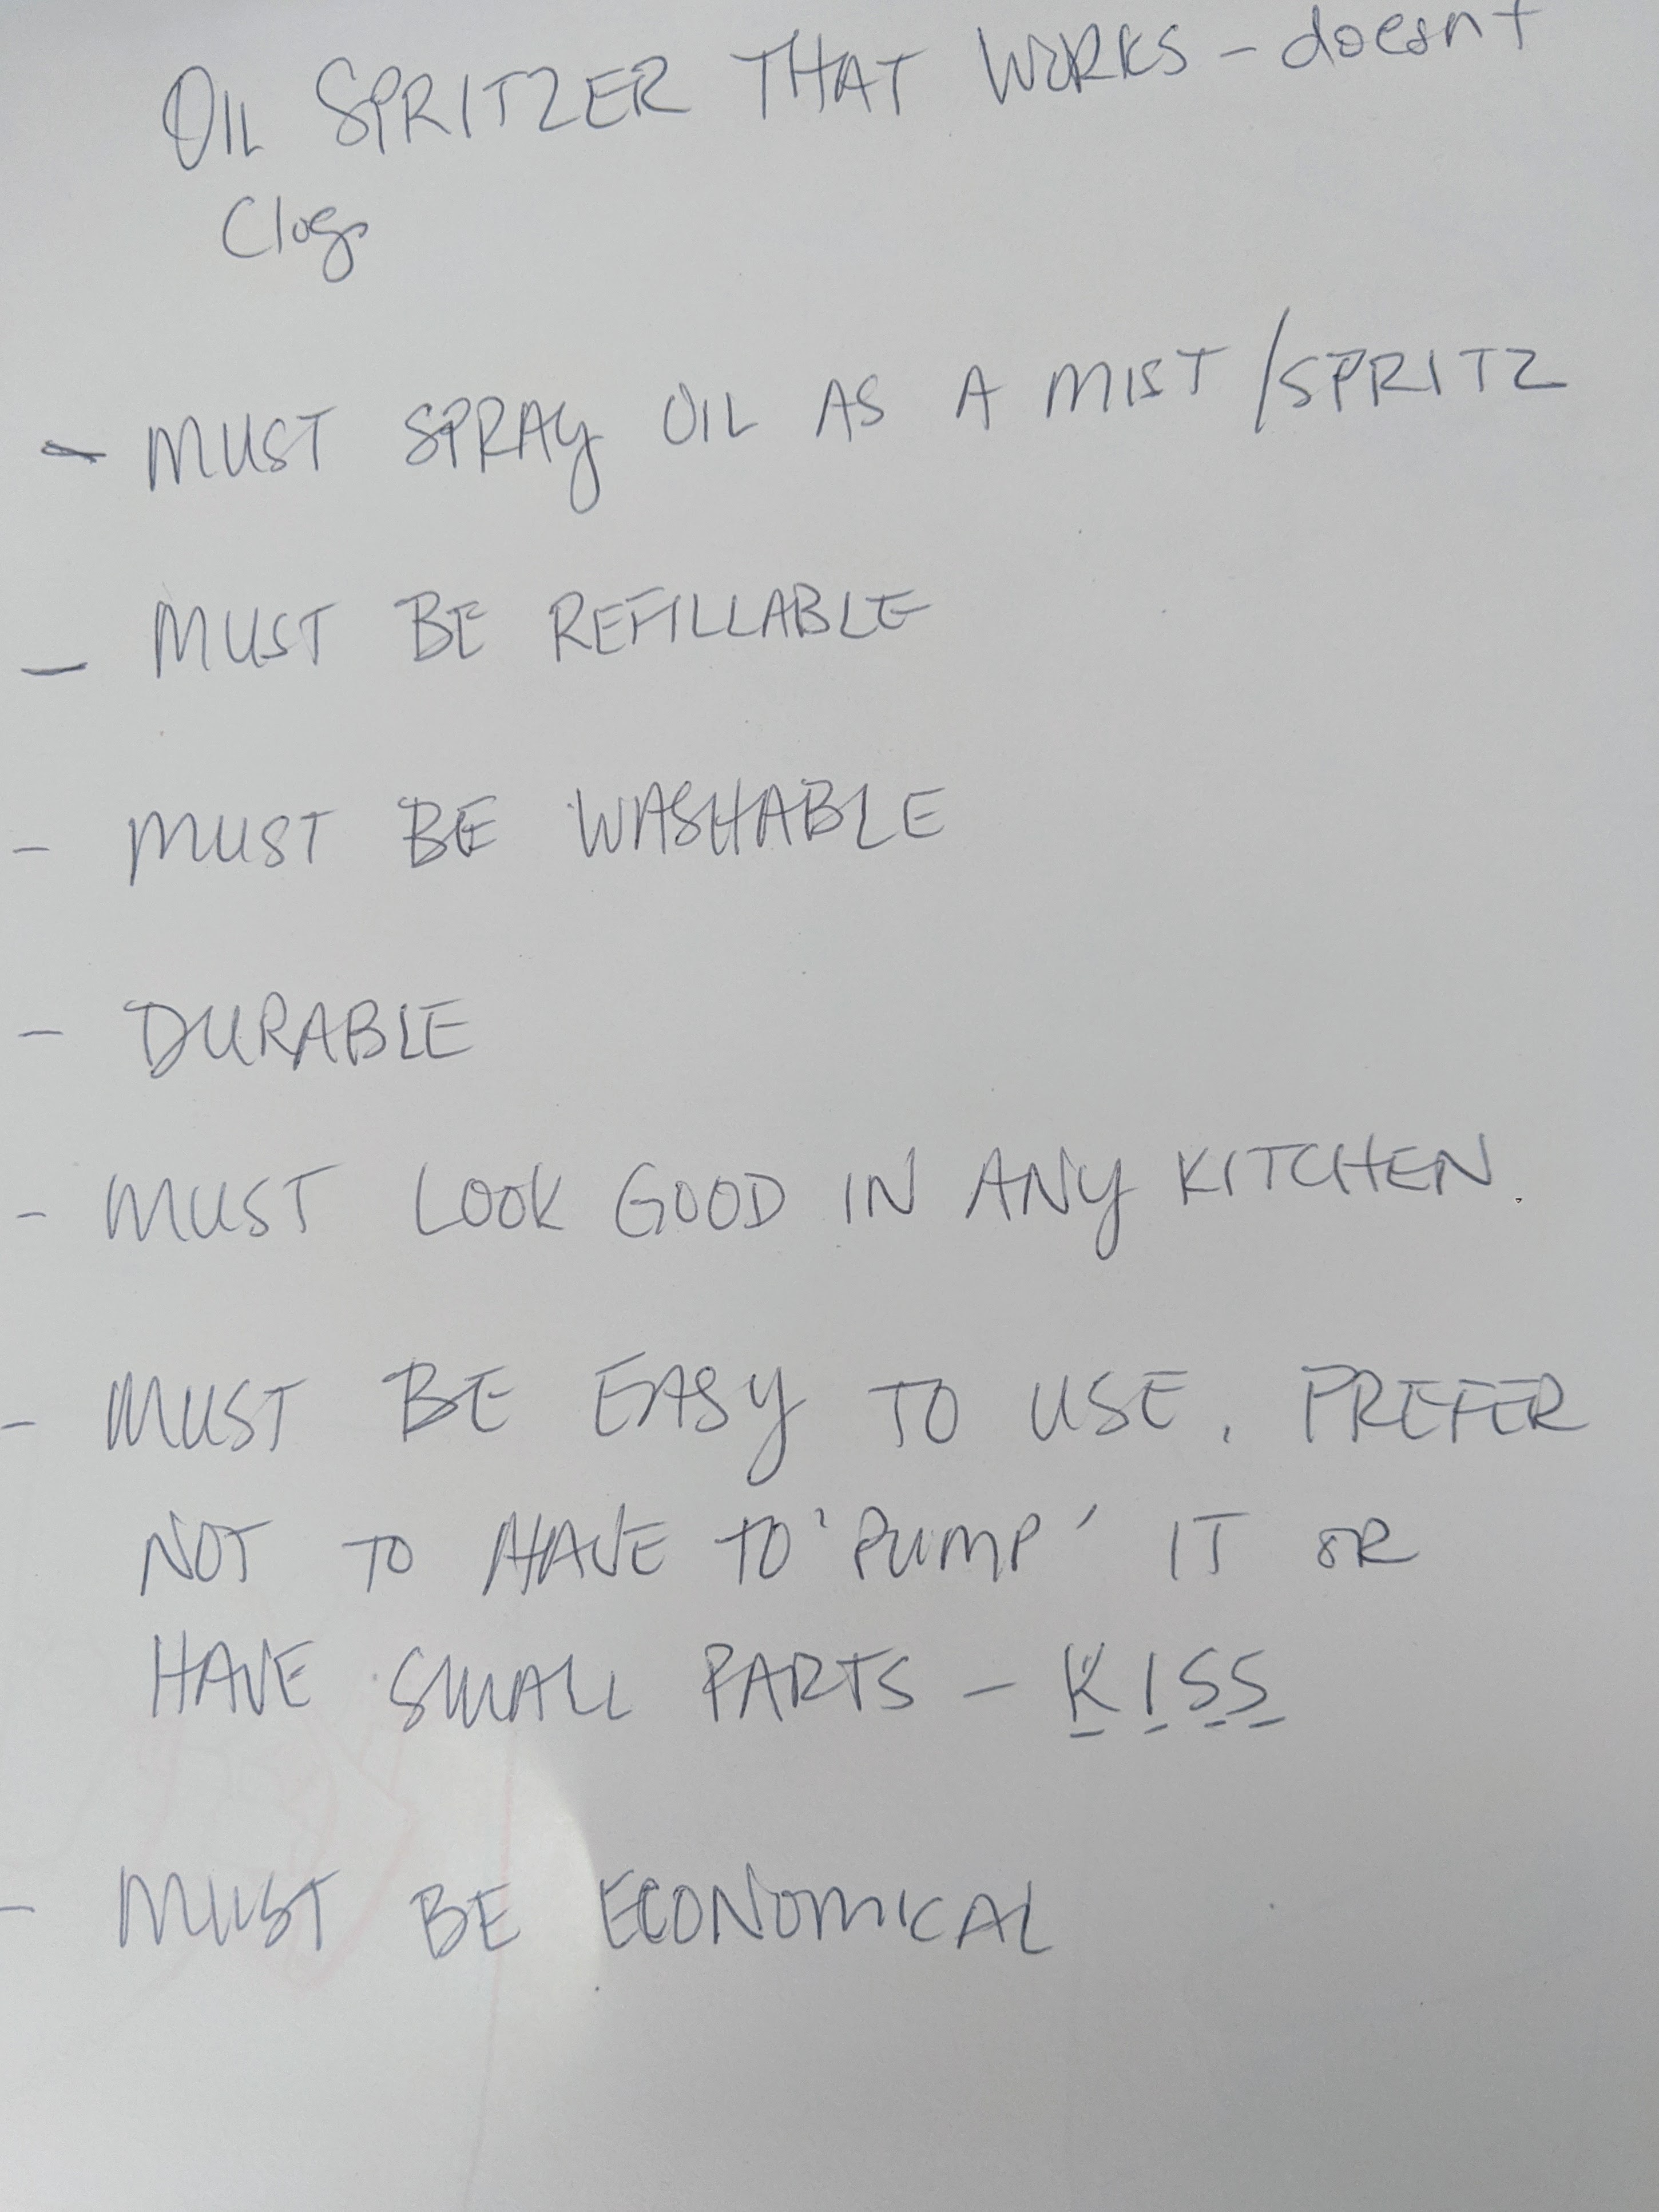 OIL SPRITZER THAT WORKS - doesnt
Clog
- MUST SPRAY OIL AS A MIST/SPRITZ
- MUST BE REFILLABLE
- MUST BE WASHABLE
- DURABLE
- MUST LOOK GOOD IN ANY KITCHEN.
- MUST BE EASY TO USE. PREFER
NOT TO HAVE TO 'PUMP' IT OR
HAVE SMALL PARTS - KISS
- MUST BE ECONOMICAL